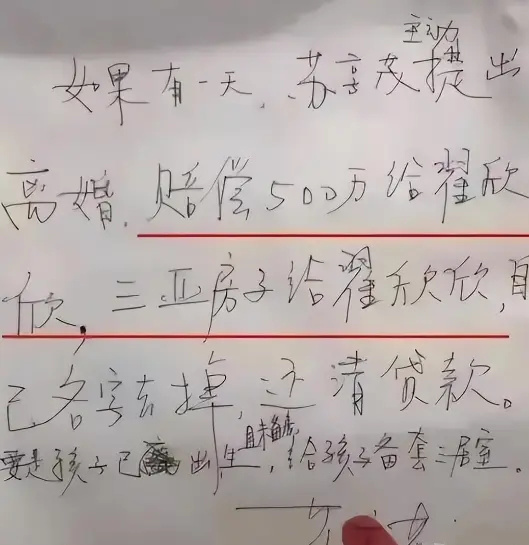 如果有一天,苏享茂主动提出
离婚,赔偿500万给翟欣
欣,三亚房子给翟欣欣,自
己名字去掉,还清贷款。
要是孩子已出生,且未备房,给孩子备套三居室。